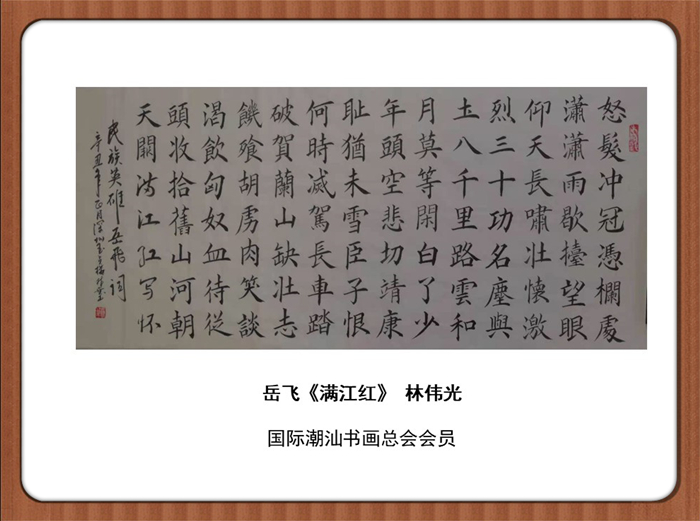 怒髮冲冠憑欄處
瀟瀟雨歇擡望眼
仰天長嘯壯懷激
烈三十功名塵與
土八千里路雲和
月莫等閑白了少
年頭空悲切靖康
耻猶未雪臣子恨
何時滅駕長車踏
破賀蘭山缺壯志
饑飱胡虜肉笑談
渴飲匈奴血待從
頭收拾舊山河朝
天闕满江红写怀
民族英雄岳飛词
辛丑年正月深圳
岳飞《满江红》 林伟光
国际潮汕书画总会会员